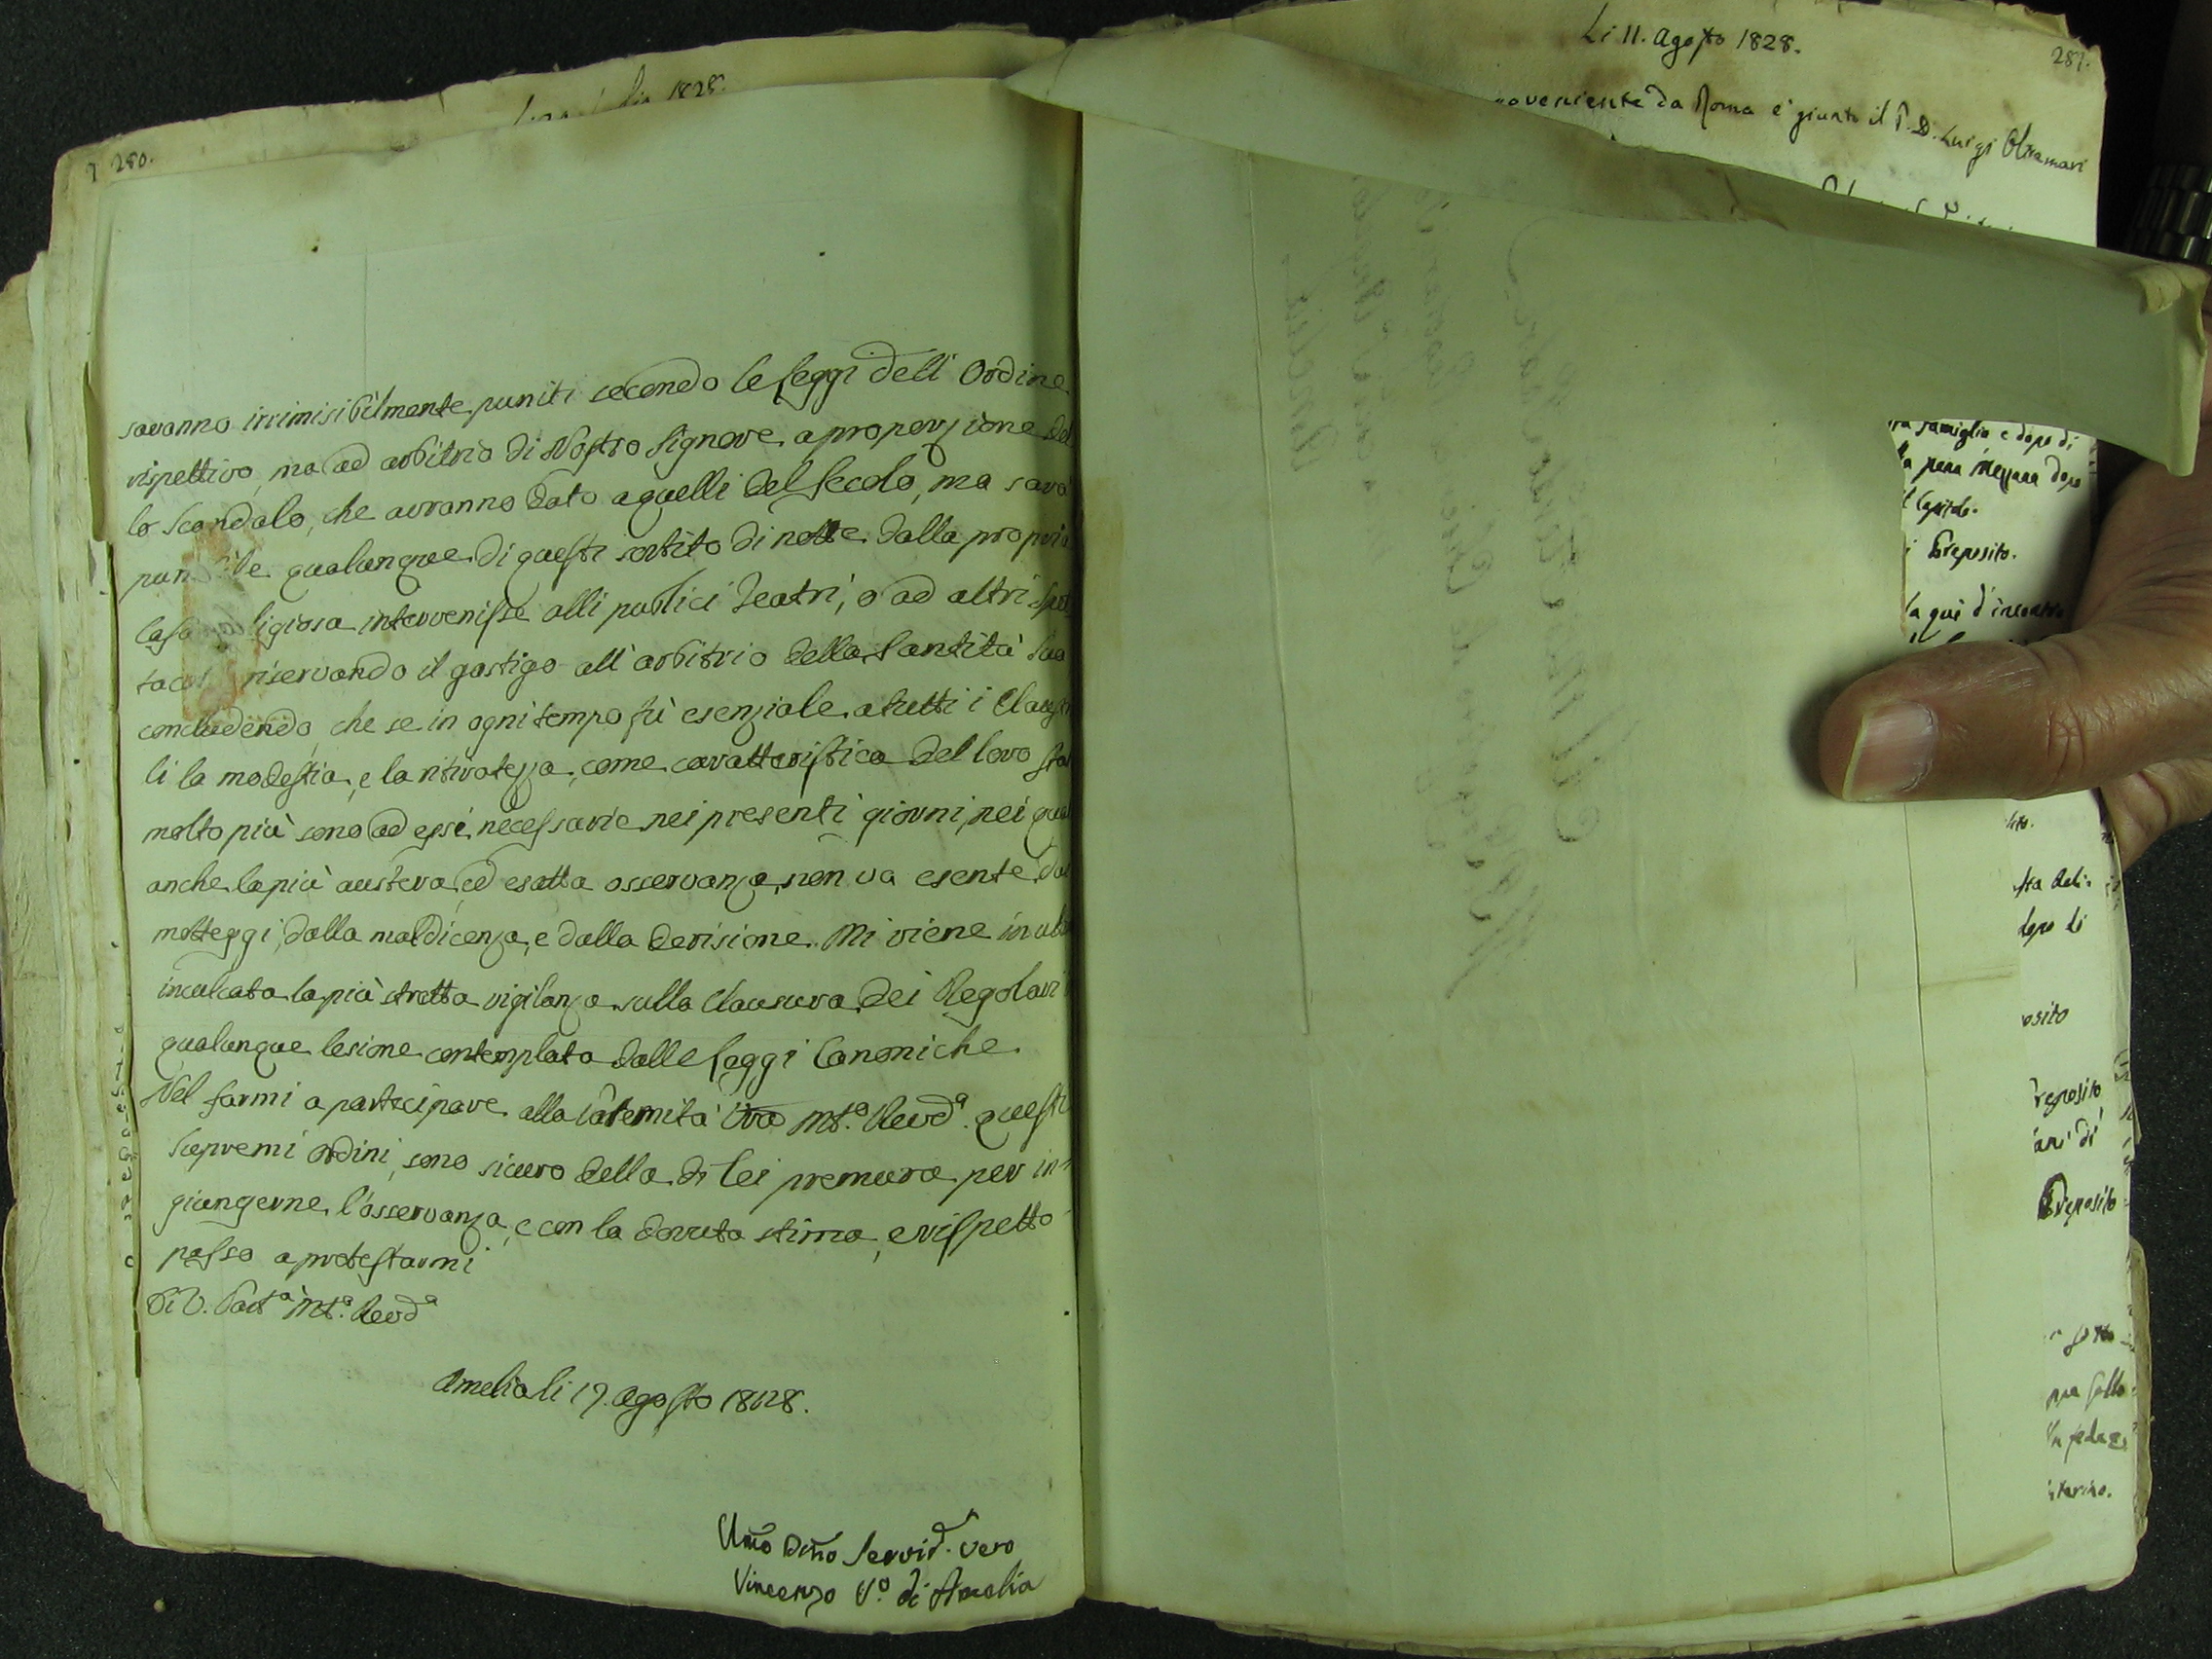 280.
saranno irrimisibilmente puniti secondo le Leggi dell' Ordine
rispettivo, ma ad arbitrio di Nostro Signore a proporzione del
lo Scandalo, che avranno dato a quelli del Secolo, ma sarà
qualunque di questi sortito di notte dalla propria
Casa intervenisse alli publici Teatri, o ad altri
riservando il gastigo all' arbitrio della Santità Sua
concludendo, che se in ogni tempo fù esenziale a tutti i
li la modestia, e la ritiratezza, come caratteristica del loro
molto più sono ad essi necessarie nei presenti giorni, nei
anche la più austera, ed esatta osservanza, non va esente
motteggi, dalla maldicenza, e dalla derisione. Mi viene in
inculcata la più stretta vigilanza sulla Clausura dei Regolari
qualunque lesione contemplata dalle Leggi Canoniche.
Nel farmi a partecipare alla Paternità Vra Mt.a Revd.a questi
Supremi Ordini, sono sicuro della di Lei premura per in=
giungerne l'osservanza, e con la dovuta stima, e rispetto
passo a protestarmi
Di V. Patt.a Mt.a Revd.a
Amelia li 17. Agosto 1828.
Umo Dmo Servid.r vero
Vincenzo V.o di Amelia
Li 11. Agosto 1828.
281.
da Roma è giunto il P. D. Luigi Oltremari
famiglia e dopo di
dopo
Preposito.
la qui d'incontro
dopo di
Preposito